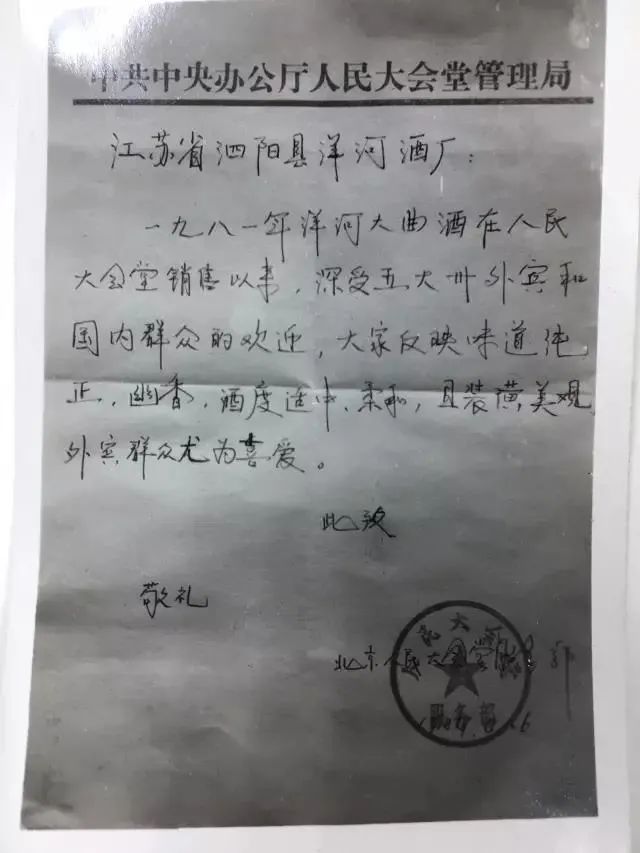 中共中央办公厅人民大会堂管理局
江苏省泗阳县洋河酒厂：
一九八一年洋河大曲酒在人民
大会堂销售以来，深受五大卅外宾和
国内群众的欢迎，大家反映味道纯
正、幽香，酒度适中、柔和，且装潢美观
外宾群众尤为喜爱。
此致
敬礼
北京人民大会堂
服务部